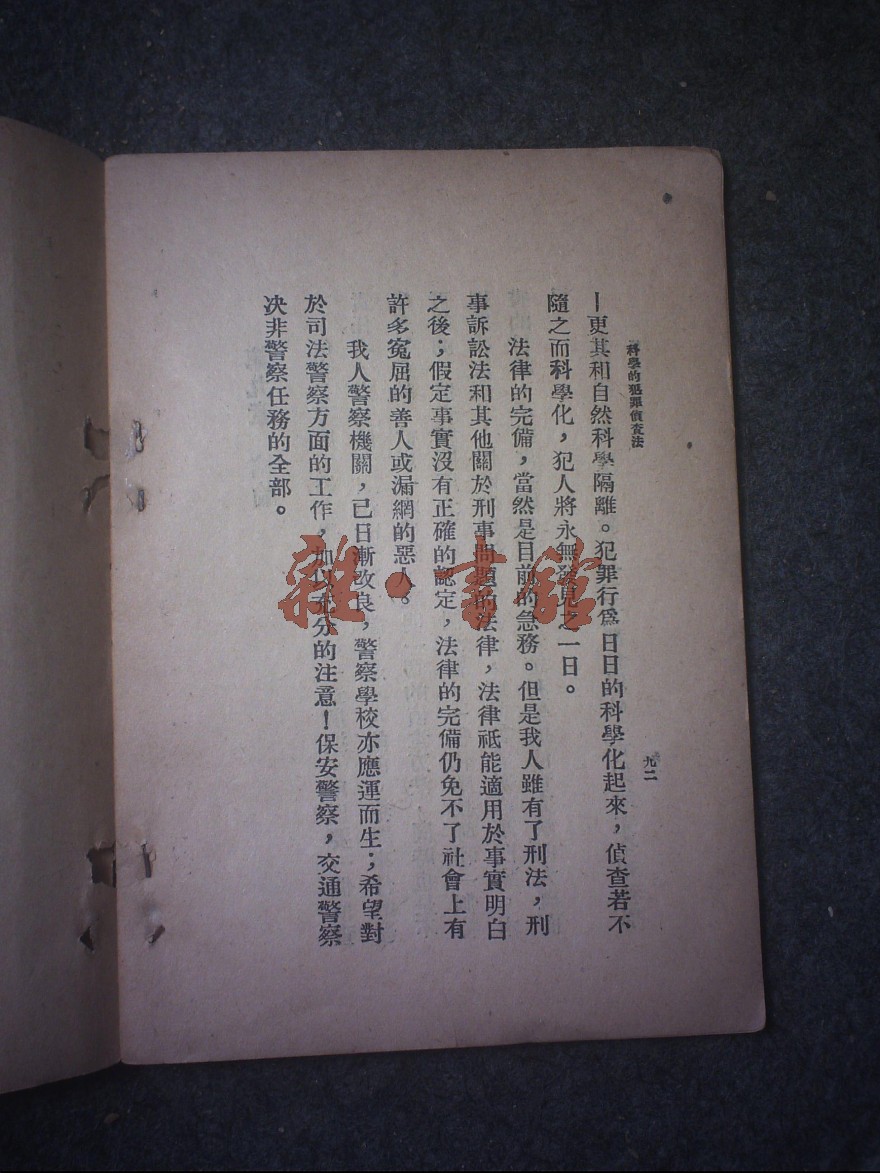 科學的犯罪偵查法
九二
—更其和自然科學隔離。犯罪行爲日日的科學化起來，偵查若不
隨之而科學化，犯人將永無發見之一日。
法律的完備，當然是目前的急務。但是我人雖有了刑法，刑
事訴訟法和其他關於刑事問題的法律，法律祗能適用於事實明白
之後；假定事實沒有正確的認定，法律的完備仍免不了社會上有
許多寃屈的善人或漏網的惡人。
我人警察機關，已日漸改良，警察學校亦應運而生；希望對
於司法警察方面的工作，加以充分的注意！保安警察，交通警察
决非警察任務的全部。
雜·書館